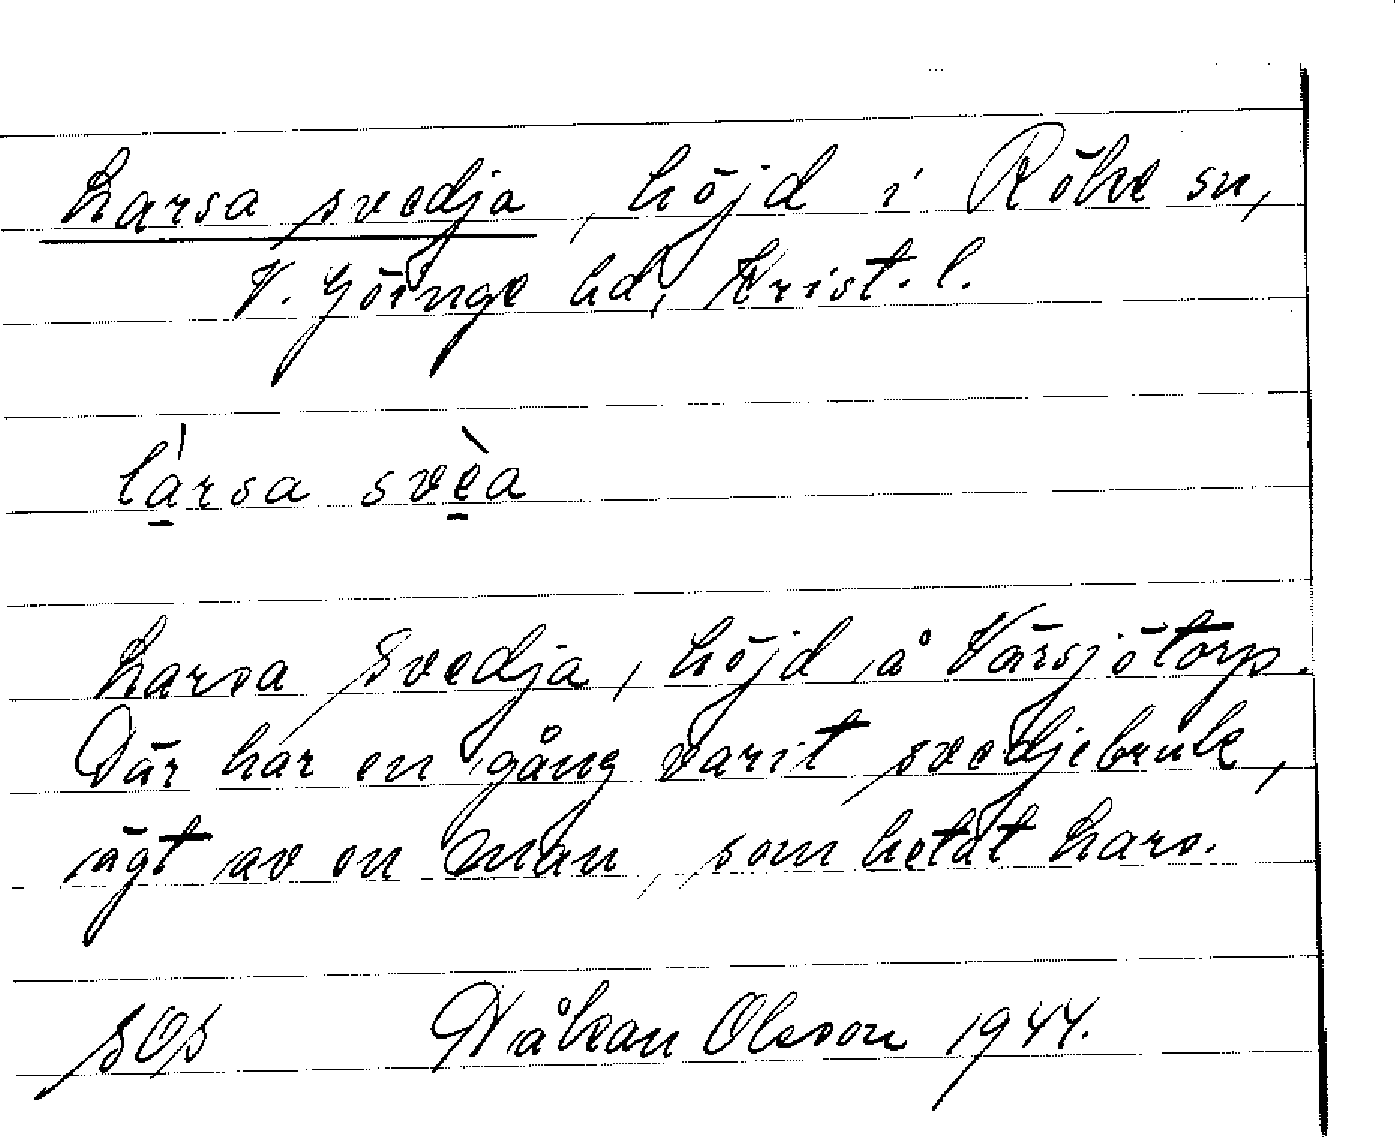 Larsa svedja, höjd i Röke sn,
V. Göinge hd, Krist. l.
lársa svèa
Larsa Svedja, höjd å Värsjötorp.
Där har en gång varit svedjebruk,
ägt av en man, som hetat Lars.
SOS Håkan Olsson 1944.